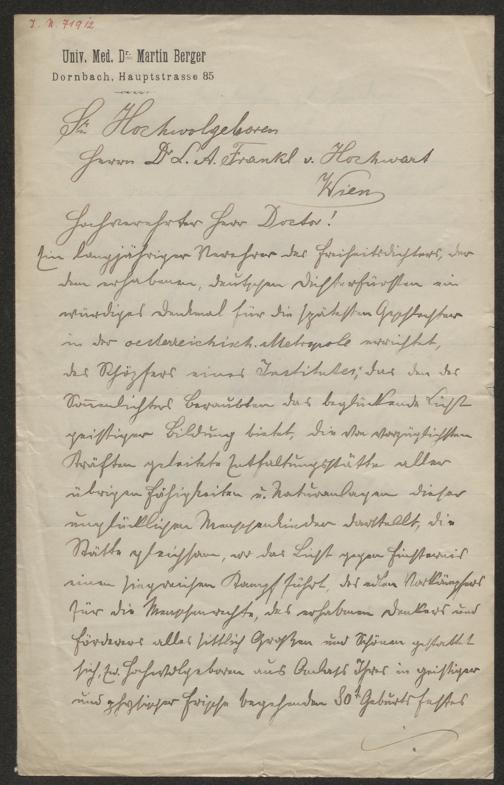 I. N. 71912
Univ. Med. Dr. Martin Berger
Dornbach, Hauptstrasse 85
Sr Hochwolgeboren
Herrn Dr L. A. Frankl v. Hochwart
Wien
Hochverehrter Herr Doctor!
Ein langjähriger Verehrer des Freiheitsdichters, der
dem erhabenen, deutschen Dichterfürsten ein
würdiges Denkmal für die spätesten Geschlechter
in der oesterreichisch. Metropole errichtet,
des Schöpfers eines Institutes, das den des
Sonnenlichtes Beraubten das beglückende Licht
geistiger Bildung bietet, die von vorzüglichsten
Kräften geleitete Entfaltungsstätte aller
übrigen Fähigkeiten u. Naturanlagen dieser
unglücklichen Menschenkinder darstellt, die
Stätte gleichsam, wo das Licht gegen Finsternis
einen siegreichen Kampf führt, des edlen Vorkämpfers
für die Menschenrechte, des erhabenen Denkers und
Förderers alles sittlich Großen und Schönen gestattet
sich, Ew. Hochwolgeboren aus Anlass Ihres in geistiger
und physischer Frische begehenden 80t Geburtsfestes